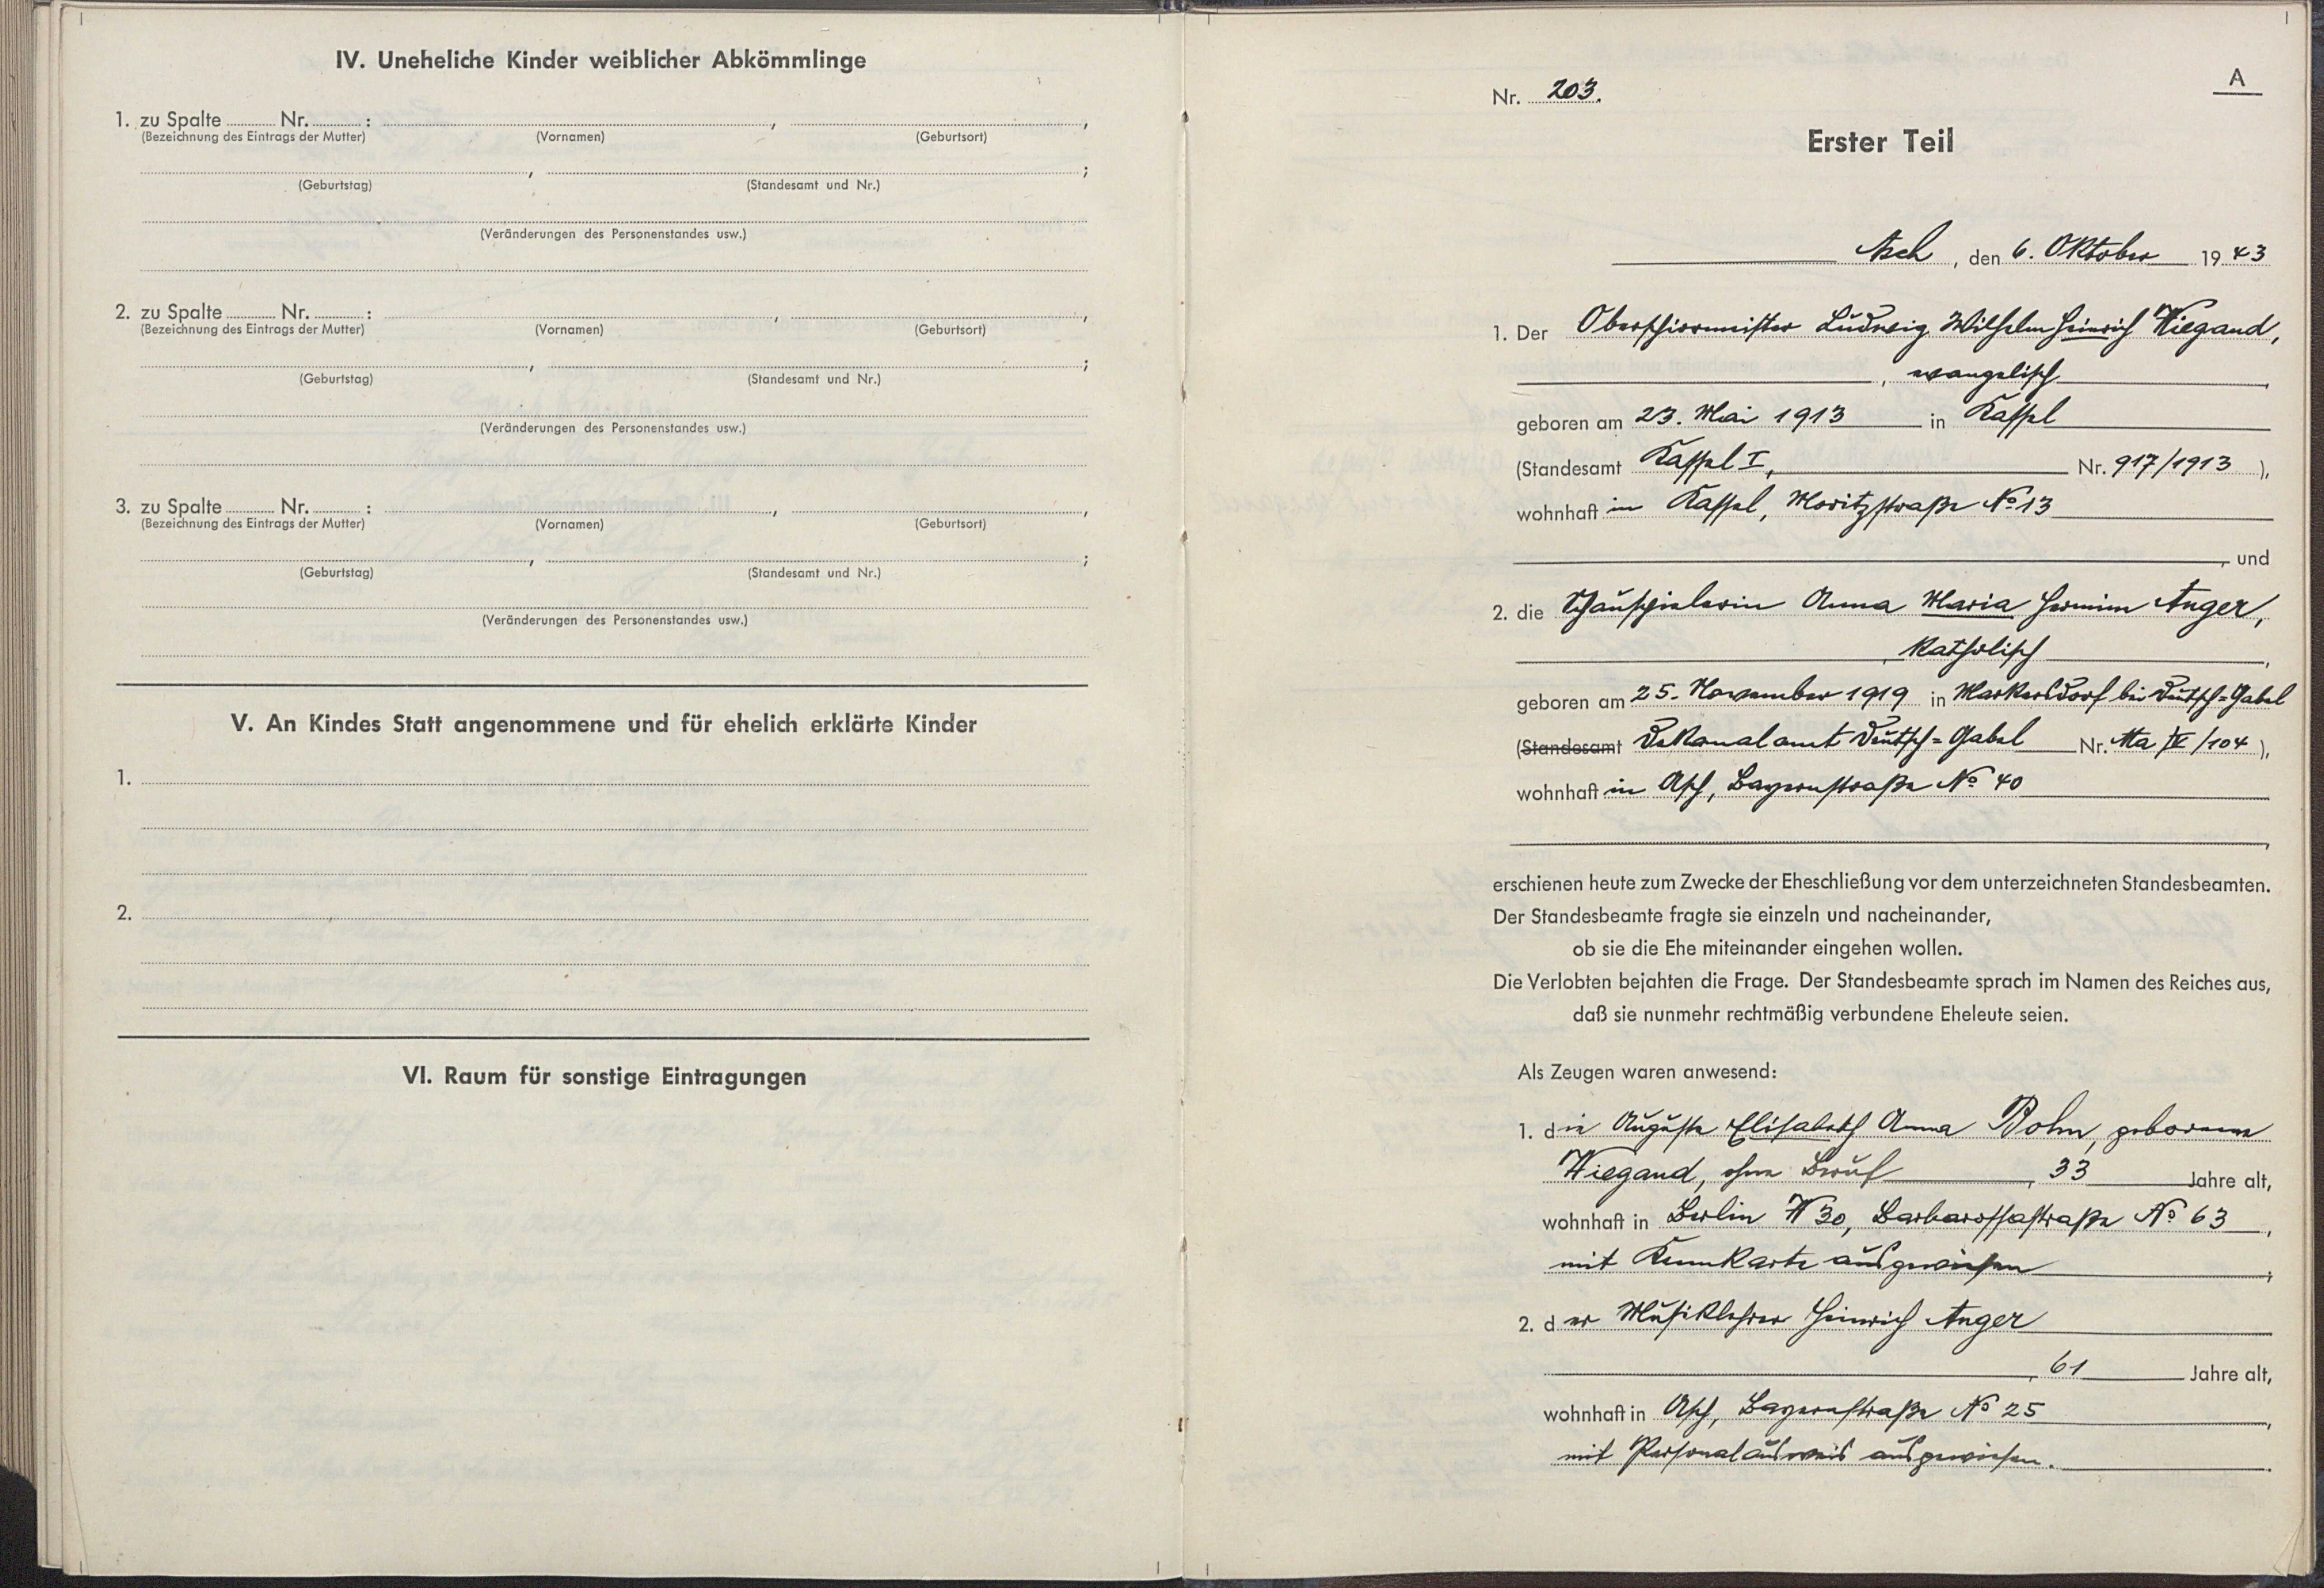 IV. Uneheliche Kinder weiblicher Abkömmlinge
1. zu Spalte Nr. : , ,
(Bezeichnung des Eintrags der Mutter) (Vornamen) (Geburtsort)
, ;
(Geburtstag) (Standesamt und Nr.)
(Veränderungen des Personenstandes usw.)
2. zu Spalte Nr. : , ,
(Bezeichnung des Eintrags der Mutter) (Vornamen) (Geburtsort)
, ;
(Geburtstag) (Standesamt und Nr.)
(Veränderungen des Personenstandes usw.)
3. zu Spalte Nr. : , ,
(Bezeichnung des Eintrags der Mutter) (Vornamen) (Geburtsort)
, ;
(Geburtstag) (Standesamt und Nr.)
(Veränderungen des Personenstandes usw.)
V. An Kindes Statt angenommene und für ehelich erklärte Kinder
1.
2.
VI. Raum für sonstige Eintragungen
A
Nr. 203.
Erster Teil
Asch, den 6. Oktober 1943
1. Der Oberschirrmeister Ludwig Wilhelm Heinrich Wiegand,
, evangelisch,
geboren am 23. Mai 1913 in Kassel
(Standesamt Kassel I, Nr. 917/1913),
wohnhaft in Kassel, Moritzstraße No 13
, und
2. die Schauspielerin Anna Maria Hermine Anger,
, katholisch,
geboren am 25. November 1919 in Markersdorf bei Deutsch=Gabel
(Standesamt Dekanalamt Deutsch=Gabel Nr. Ma/IV/104),
wohnhaft in Asch, Bayernstraße No 40
,
erschienen heute zum Zwecke der Eheschließung vor dem unterzeichneten Standesbeamten.
Der Standesbeamte fragte sie einzeln und nacheinander,
ob sie die Ehe miteinander eingehen wollen.
Die Verlobten bejahten die Frage. Der Standesbeamte sprach im Namen des Reiches aus,
daß sie nunmehr rechtmäßig verbundene Eheleute seien.
Als Zeugen waren anwesend:
1. die Auguste Elisabeth Anna Bohm, geborene
Wiegand, ohne Beruf, 33 Jahre alt,
wohnhaft in Berlin W 30, Barbarossastraße No 63,
mit Kennkarte ausgewiesen,
2. der Musiklehrer Heinrich Anger
, 61 Jahre alt,
wohnhaft in Asch, Bayernstraße No 25,
mit Personalausweis ausgewiesen.